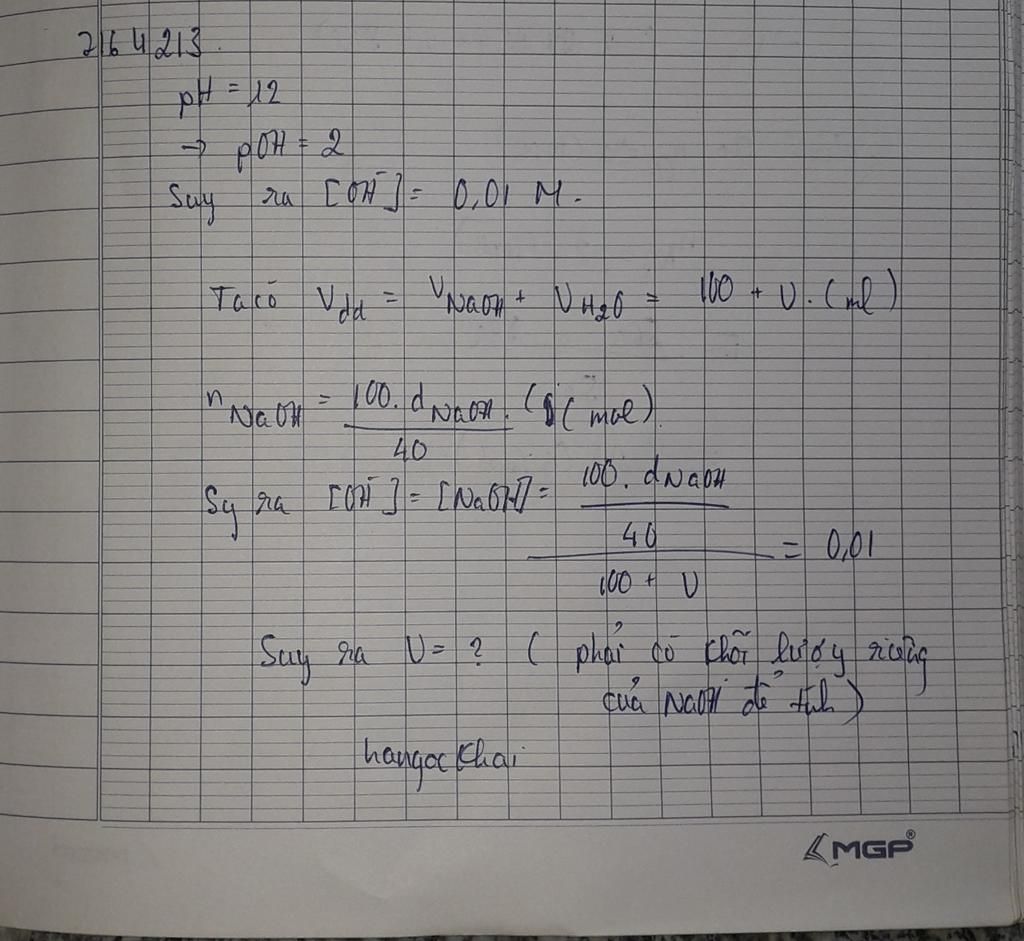 2164213.
pH = 12
→ pOH = 2
Suy ra [OH⁻] = 0,01 M.
Ta có Vdd = VNaOH + VH2O = 100 + V. (ml)
nNaOH = 100. dNaOH. / 40 (mol).
Sy ra [OH⁻] = [NaOH] = 100. dNaOH / 40 / 100 + V = 0,01
Suy ra V = ? ( phải có khối lượng riêng
của NaOH để tính )
hangockhai
MGP®